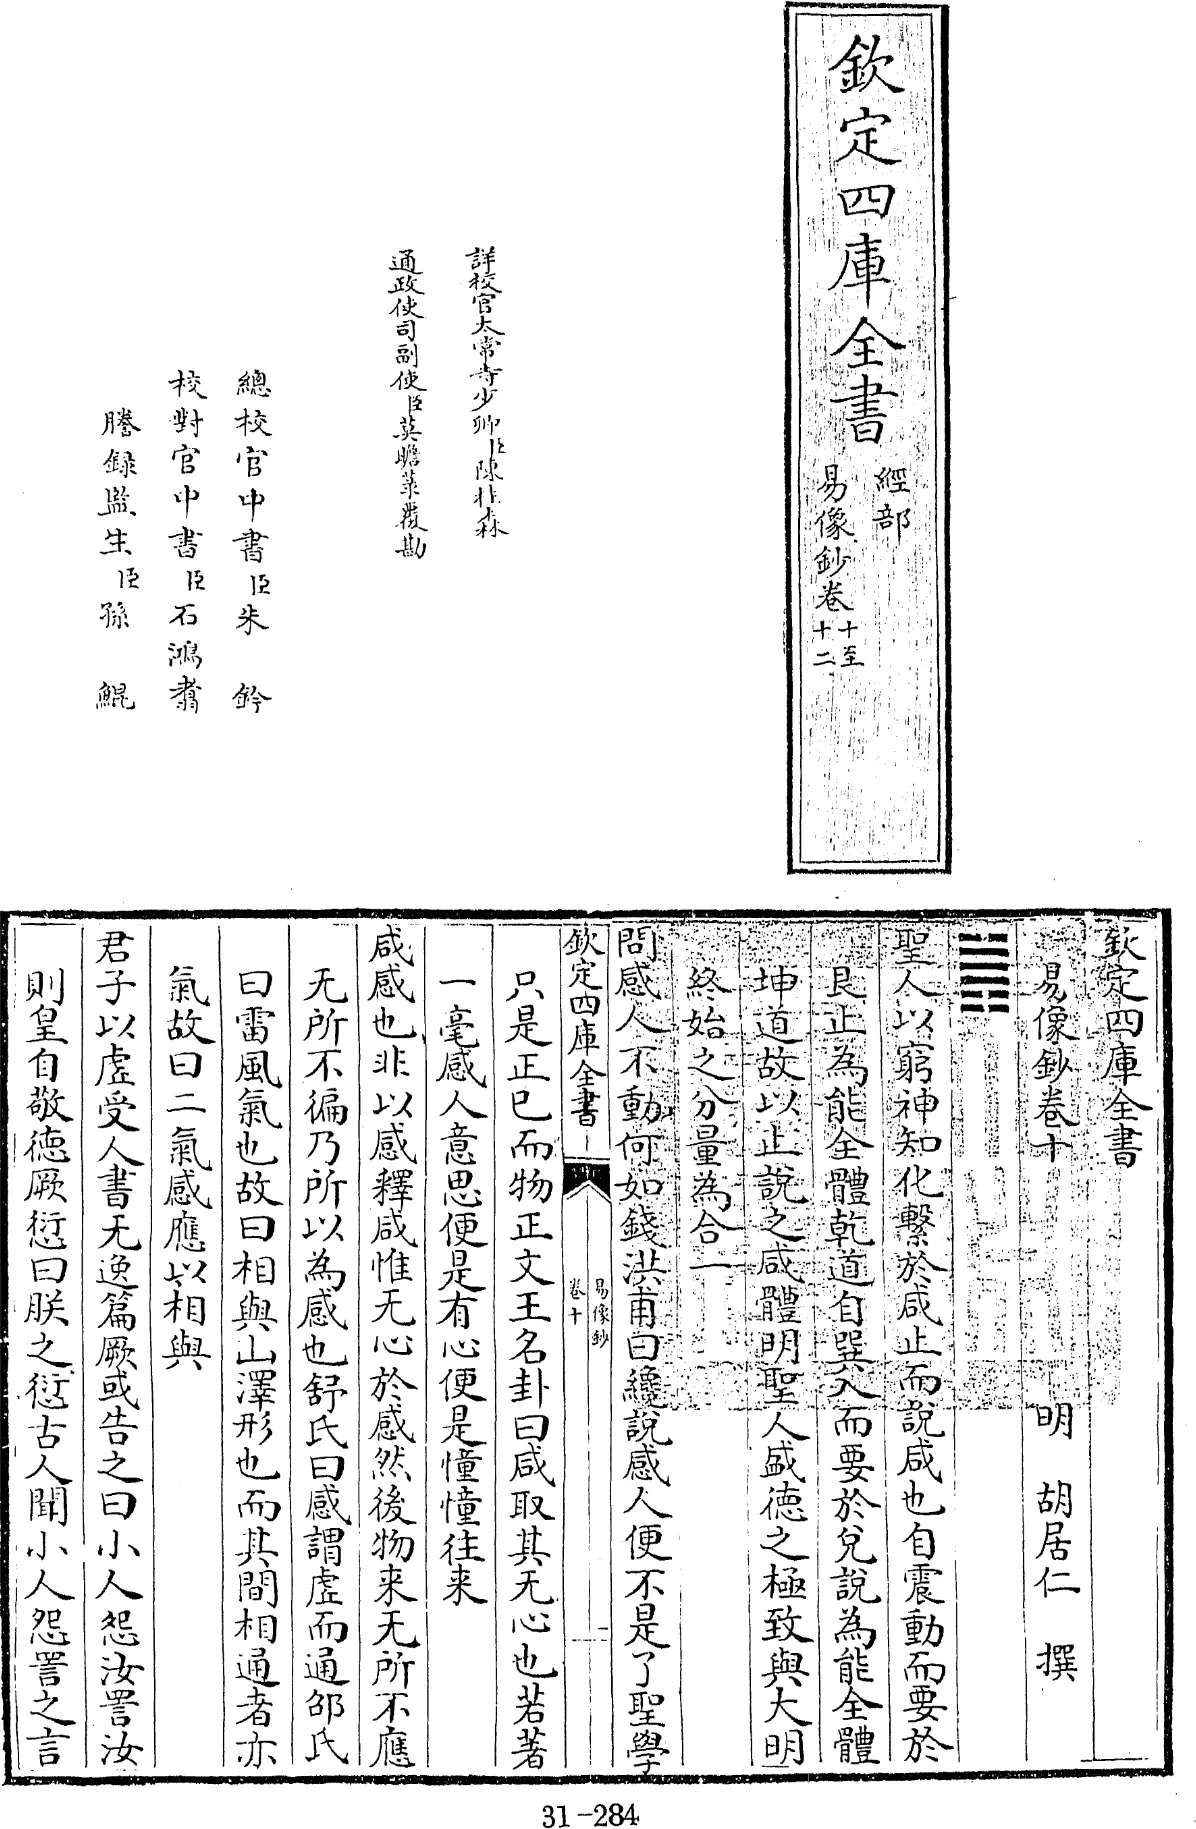 欽定四庫全書
經部
易像鈔卷十至十二
詳校官太常寺少卿臣陳桂森
通政使司副使臣莫瞻菉覆勘
總校官中書臣朱鈐
校對官中書臣石鴻翥
謄錄監生臣孫鯤
欽定四庫全書
易像鈔卷十
明 胡居仁 撰
聖人以窮神知化繫於咸止而說咸也自震動而要於
艮止為能全體乾道自巽入而要於兌說為能全體
坤道故以止說之咸體明聖人盛德之極致與大明
終始之分量為合一
問感人不動何如錢洪甫曰纔說感人便不是了聖學
欽定四庫全書
易像鈔
卷十
一
只是正已而物正文王名卦曰咸取其无心也若著
一毫感人意思便是有心便是憧憧往来
咸感也非以感釋咸惟无心於感然後物来无所不應
无所不徧乃所以為感也舒氏曰感謂虛而通邵氏
曰雷風氣也故曰相與山澤形也而其間相通者亦
氣故曰二氣感應以相與
君子以虛受人書无逸篇厥或告之曰小人怨汝詈汝
則皇自敬徳厥愆曰朕之愆古人聞小人怨詈之言
31-284